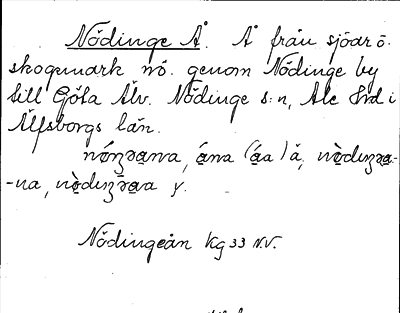 Nödinge Å. Å från sjöar ö.
skogsmark nö. genom Nödinge by
till Göta Älv. Nödinge s:n, Ale hrd i
Älfsborgs län.
ána (áa) å,
-na, y.
Nödingeån kg 33 N.V.